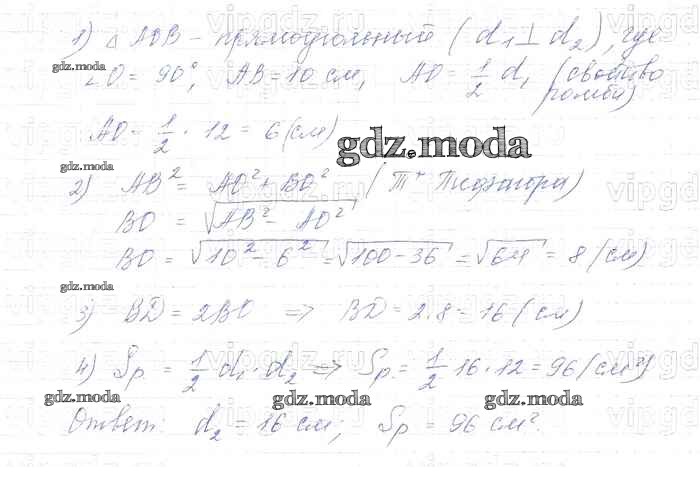 1) △ AOB – прямоугольный (d₁ ⊥ d₂), где
∠O = 90°, AB = 10 см, AO = 1/2 d₁ (свойство ромба)
gdz.moda
AO = 1/2 · 12 = 6 (см)
gdz.moda
2) AB² = AO² + BO² (т. Пифагора)
gdz.moda
BO = √(AB² - AO²)
BO = √(10² - 6²) = √(100 - 36) = √64 = 8 (см)
gdz.moda
3) BD = 2BO => BD = 2·8 = 16 (см)
4) Sр. = 1/2 d₁ · d₂ => Sр. = 1/2 16 · 12 = 96 (см²)
gdz.moda gdz.moda gdz.moda
Ответ: d₂ = 16 см; Sр = 96 см².